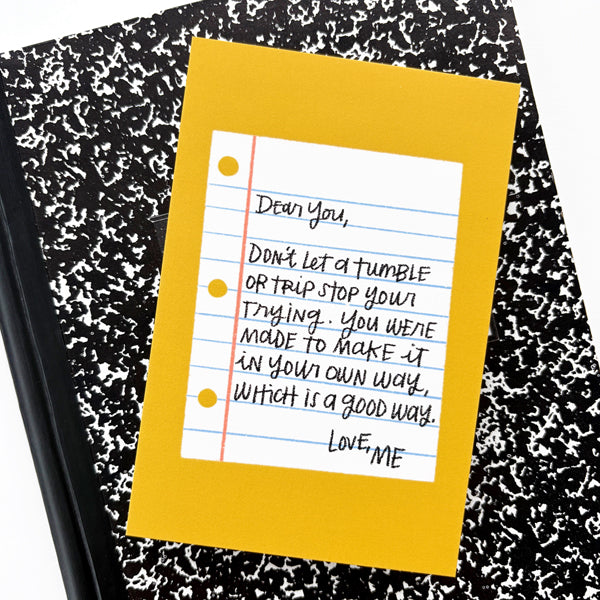 Dear You,
Don't let a tumble
or trip stop your
trying. You were
made to make it
in your own way,
which is a good way.
Love, Me